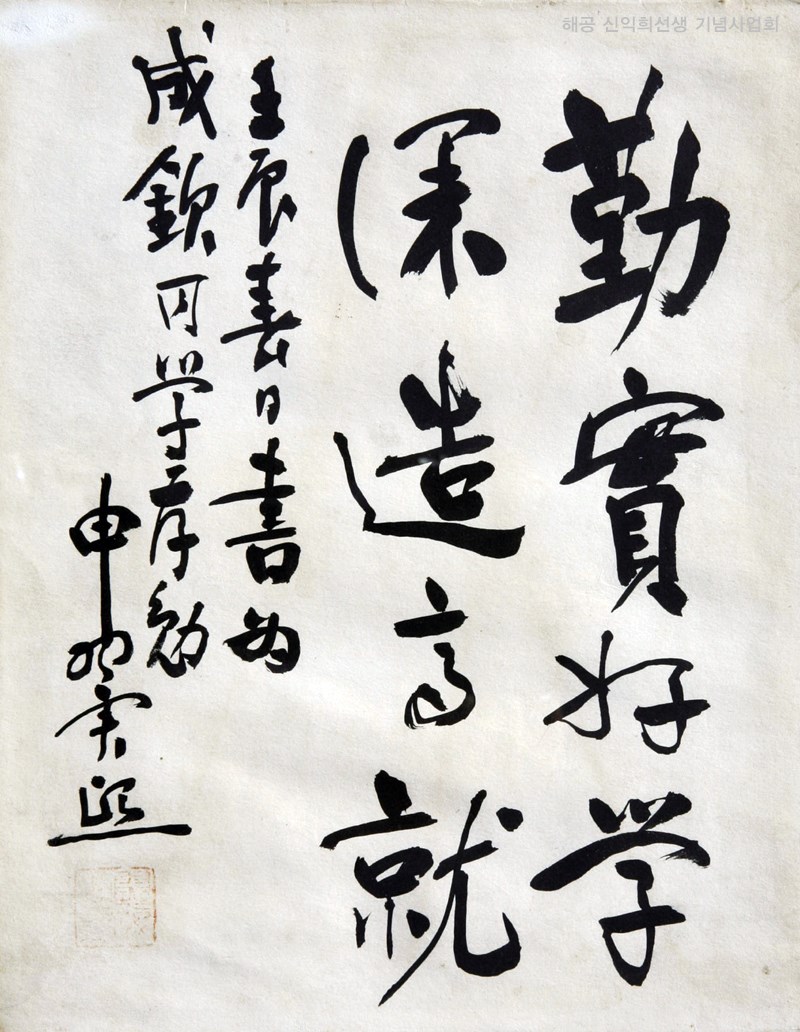 해공 신익희선생 기념사업회
勤實好学
深造高就
壬辰春日書為
咸欽同学序勉
申